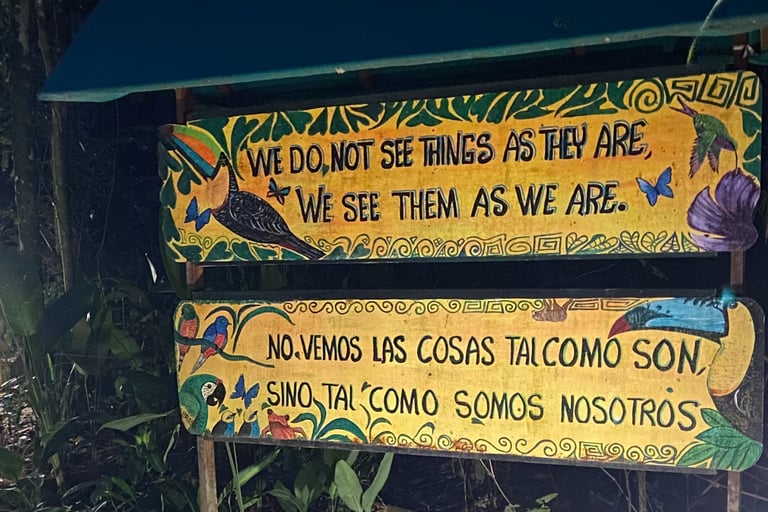 WE DO NOT SEE THINGS AS THEY ARE,
WE SEE THEM AS WE ARE.
NO VEMOS LAS COSAS TAL COMO SON,
SINO TAL COMO SOMOS NOSOTROS